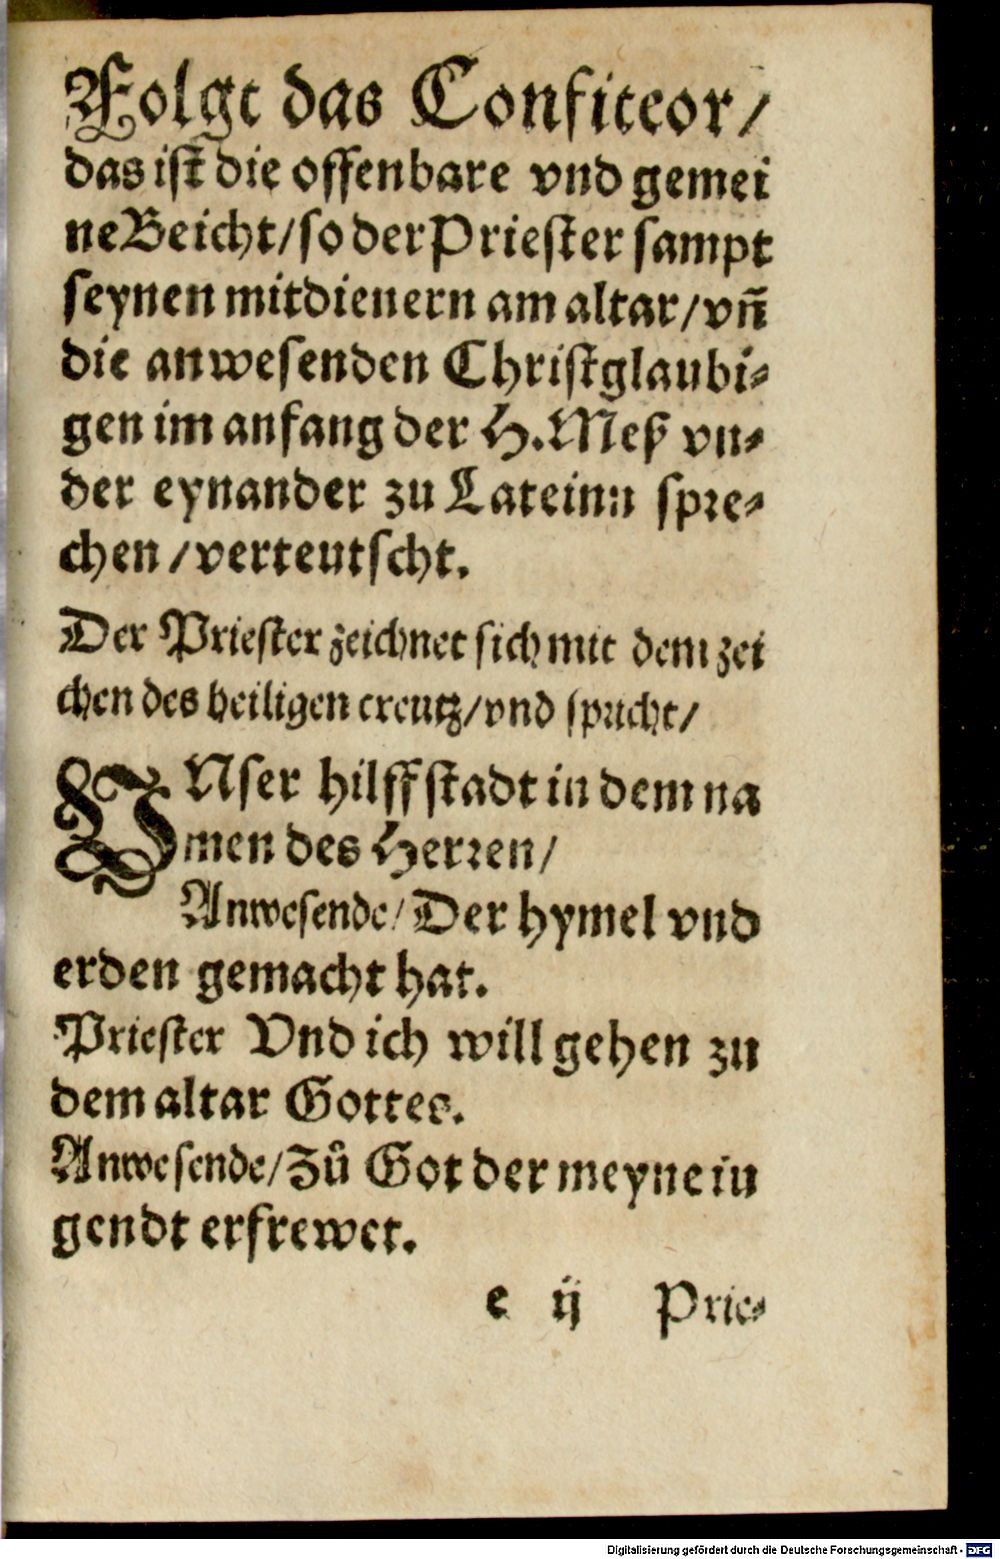 Folgt das Confiteor/
das ist die offenbare vnd gemei
ne Beicht/ so der Priester sampt
seynen mitdienern am altar/ vñ
die anwesenden Christglaubi⸗
gen im anfang der H. Meß vn⸗
der eynander zu Lateinn spre⸗
chen/ verteutscht.
Der Priester zeichnet sich mit dem zei
chen des heiligen creutz/ vnd spricht/
VNser hilff stadt in dem na
men des Herren/
Anwesende/ Der hymel vnd
erden gemacht hat.
Priester Vnd ich will gehen zu
dem altar Gottes.
Anwesende/ Zů Got der meyne iu
gendt erfrewet.
e ij Prie⸗
Digitalisierung gefördert durch die Deutsche Forschungsgemeinschaft - DFG